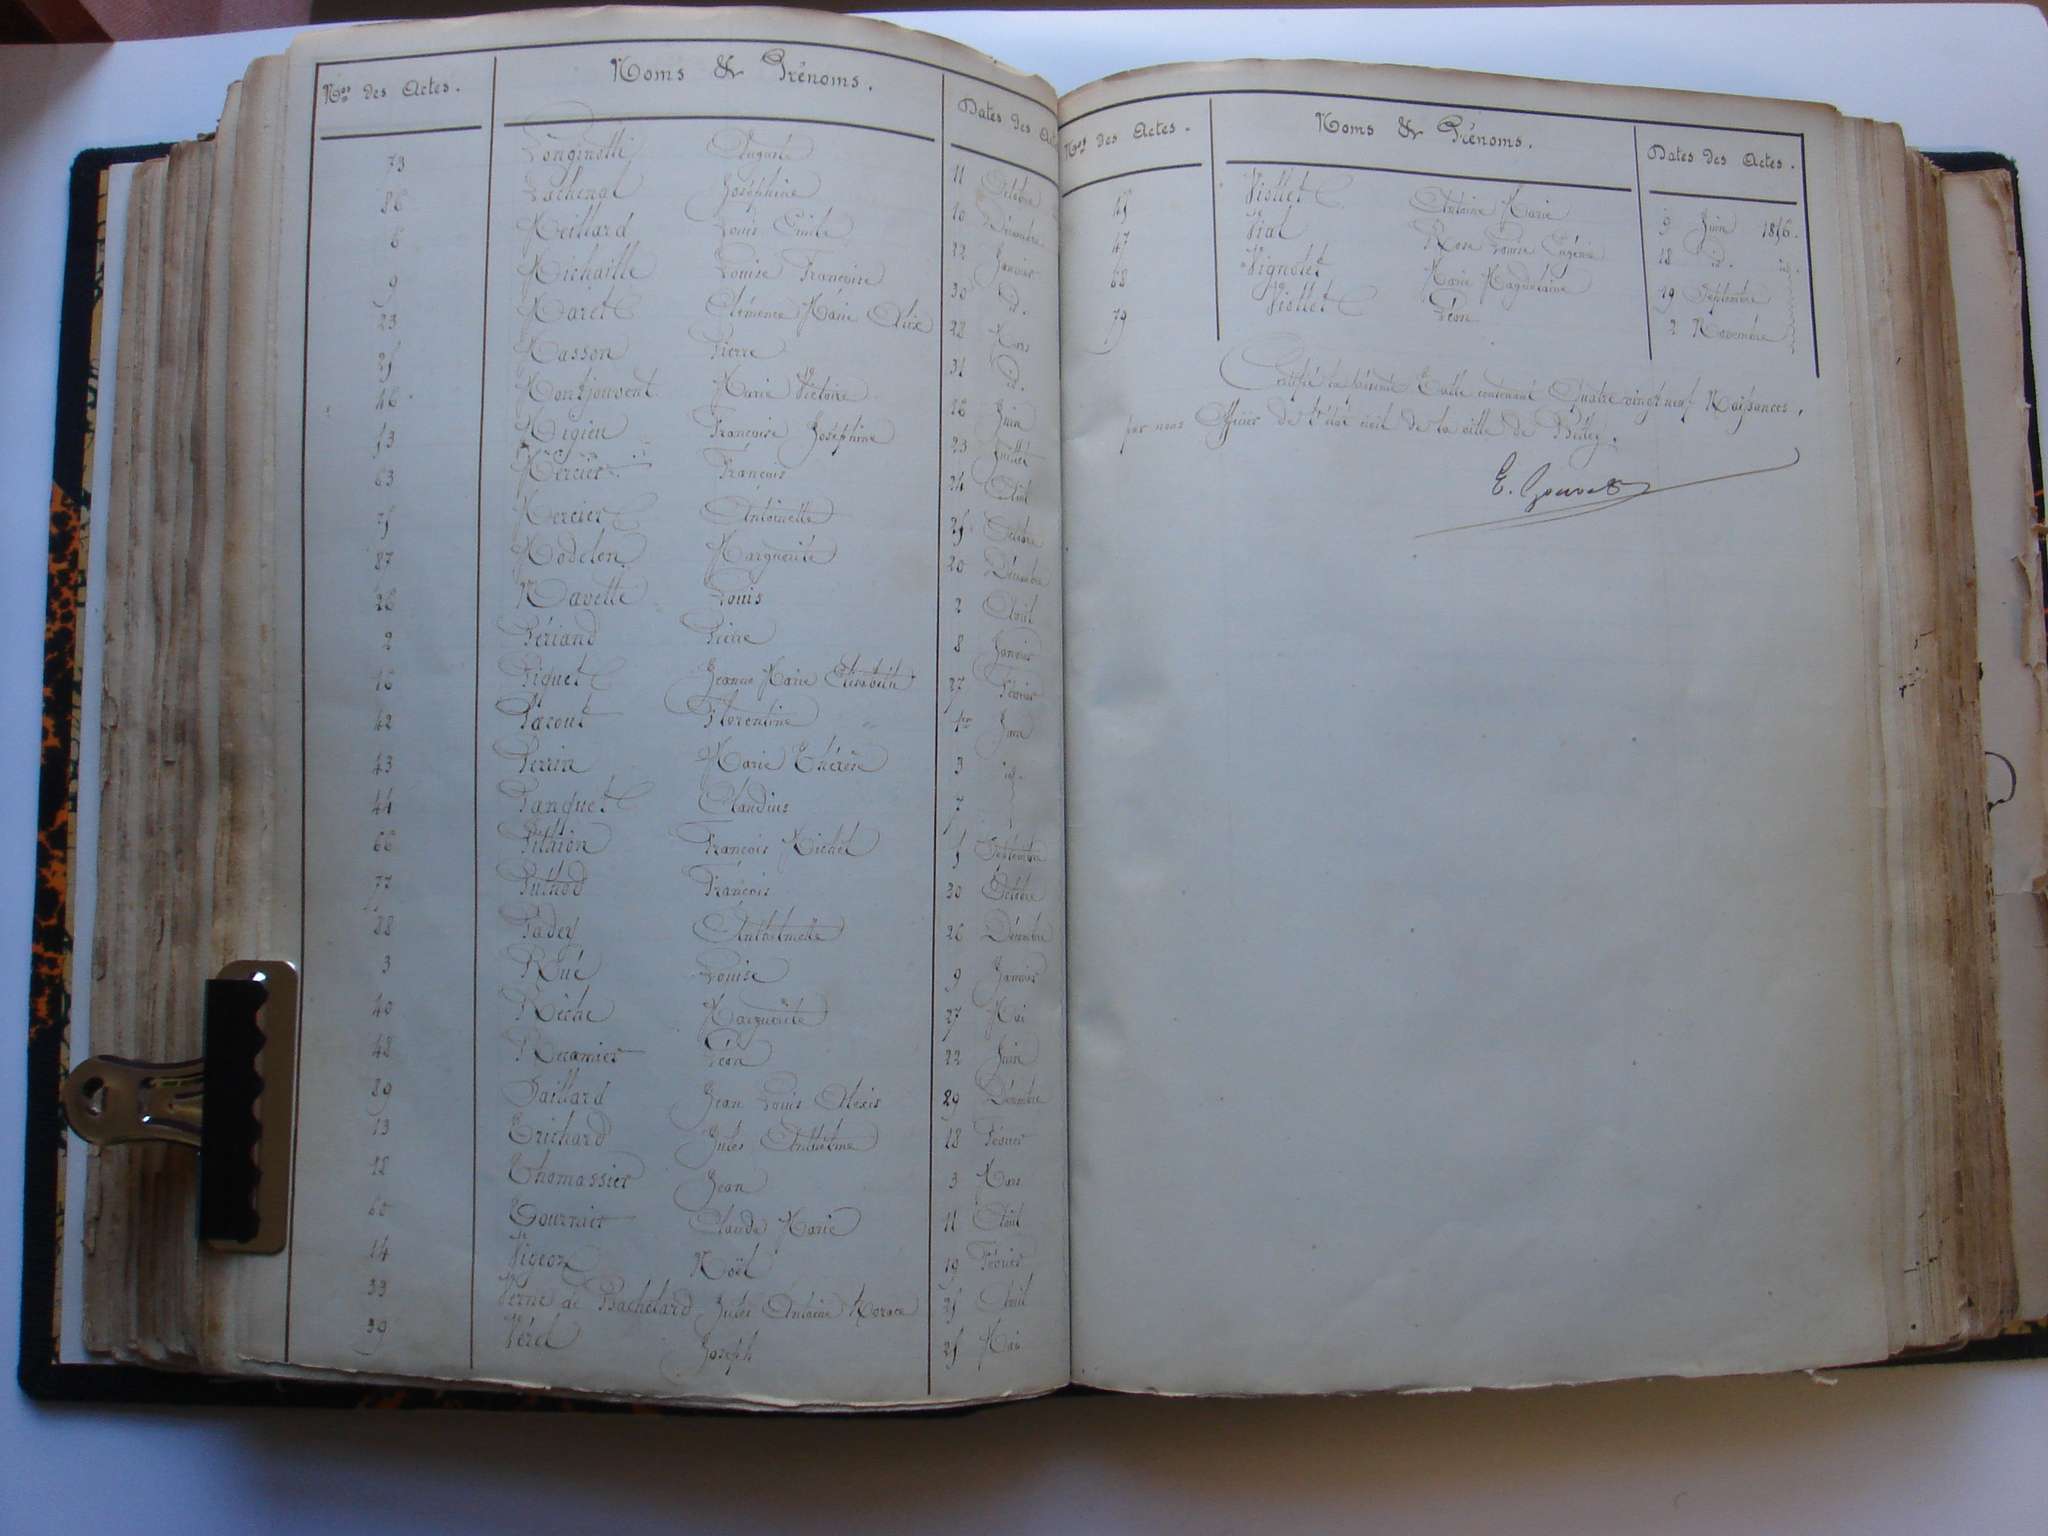 Nos des Actes. Noms & Prénoms. Dates des
73 Longinotti Auguste 11 Octobre
86 Lachenal Joséphine 10 Décembre
6 Meillard Louis Emile 22 Janvier
9 Michaille Louise Françoise 30 Id.
23 Maret Clémence Marie Alix 22 Mars
25 Masson Pierre 31 Id.
46 Montjouvent Marie Victoire 16 Juin
53 Migieu Françoise Joséphine 23 Juillet
63 Mercier François 24 Août
75 Mercier Antoinette 25 Octobre
87 Modelen Marguerite 20 Décembre
26 Navette Louis 2
2 Fériand Pierre 8 Janvier
16 Piquet Jeanne Marie Elisabeth 27 Février
42 Parout Florentine 1er Juin
43 Perrin Marie Thérèse 3 id.
44 Panquet Claudius 7
66 Pithion François Michel 5 Septembre
77 Puthod François 30 Octobre
88 Padey Anthelmette 26 Décembre
3 Rué Louise 9 Janvier
40 Rêche Marguerite 27 Mai
48 Recamier Léon 22 Juin
89 Saillard Jean Louis Alexis 29 Décembre
13 Trichard Jules Anthelme 18 Février
18 Thomassier Jean 3 Mars
60 Tournier Claude Marie 11 Août
14 Vigeon Noël 19 Février
33 Verne de Bachelard Jules Antoine Horace 25
39 Vérel Joseph 25 Mai
Nos des Actes. Noms & Prénoms. Dates des Actes.
45 Viollet Antoine Marie 9 Juin 1856.
47 Vial Rose Louise Eugénie 18 id. id.
68 Vignolet Marie Magdelaine 19 Septembre
79 Viollet Léon 2 Novembre
Certifié la présente Table contenant Quatre vingt neuf Naissances,
par nous Officier de l'état civil de la ville de Belley.
E. Gouvet